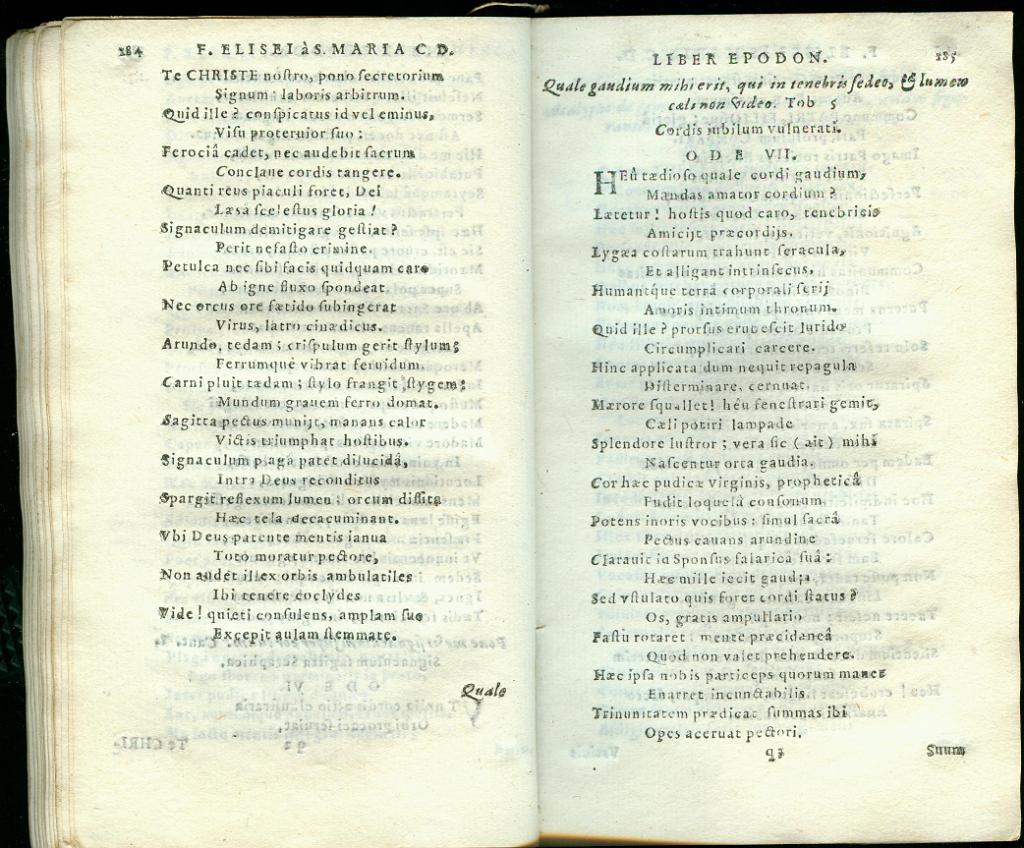 284 F. ELISEI à S. MARIA C. D.
Te CHRISTE noſtro, pono ſecretorium
Signum: laboris arbitrum.
Quid ille? conſpicatus id vel eminus,
Viſu proteruior ſuo:
Ferociâ cadet, nec audebit ſacrum
Conclaue cordis tangere.
Quanti reus piaculi foret, Dei
Læsa ſceleſtus gloria!
Signaculum demitigare geſtiat?
Perit nefaſto crimine.
Petulca nec ſibi facis quidquam caro
Ab igne fluxo ſpondeat.
Nec orcus ore fœtido ſubingerat
Virus, latro cinædicus.
Arundo, tedam; criſpulum gerit ſtylum;
Ferrumquè vibrat feruidum.
Carni pluit tædam; ſtylo frangit ſtygem;
Mundum grauem ferro domat.
Sagitta pectus munijt, manans calor
Victis triumphat hoſtibus.
Signaculum plagâ patet dilucidâ,
Intrà Deus reconditus
Spargit reflexum lumen; orcum diſſita
Hæc tela decacuminant.
Vbi Deus patente mentis ianua
Toto moratur pectore,
Non audet illex orbis ambulatiles
Ibi tenere coclydes
Vide! quieti conſulens, amplam ſuo
Excepit aulam ſtemmate.
Quale
LIBER EPODON. 285
Quale gaudium mihi erit, qui in tenebris ſedeo, & lumen
cæli non video. Tob 5
Cordis iubilum vulnerati.
ODE VII.
HEu tædioſo quale cordi gaudium,
Mandas amator cordium?
Lætetur! hoſtis quod caro, tenebricis
Amicijt præcordijs.
Lygæa coſtarum trahunt ſeracula,
Et alligant intrinſecus,
Humantque terrâ corporali ſerij
Amoris intimum thronum.
Quid ille? prorſus erubeſcit lurido
Circumplicari carcere.
Hinc applicata dum nequit repagula
Diſterminare, cernuat.
Mærore ſquallet! hêu feneſtrari gemit,
Cæli potiri lampade
Splendore luſtror; vera ſic (ait) mihi
Naſcentur orta gaudia.
Cor hæc pudicæ virginis, propheticâ
Fudit loquelâ conſonum
Potens inoris vocibus: ſimul ſacrâ
Pectus cauans arundine
Clarauit id Sponſus falaricâ ſuâ:
Hæc mille iecit gaudia.
Sed vſtulato quis foret cordi ſtatus?
Os, gratis ampullario
Faſtu rotaret: mente præcidaneâ
Quod non valet prehendere.
Hæc ipſa nobis particeps quorum manet
Enarret incunctabilis
Trinunitatem prædicat ſummas ibi
Opes aceruat pectori.
q3 Suum